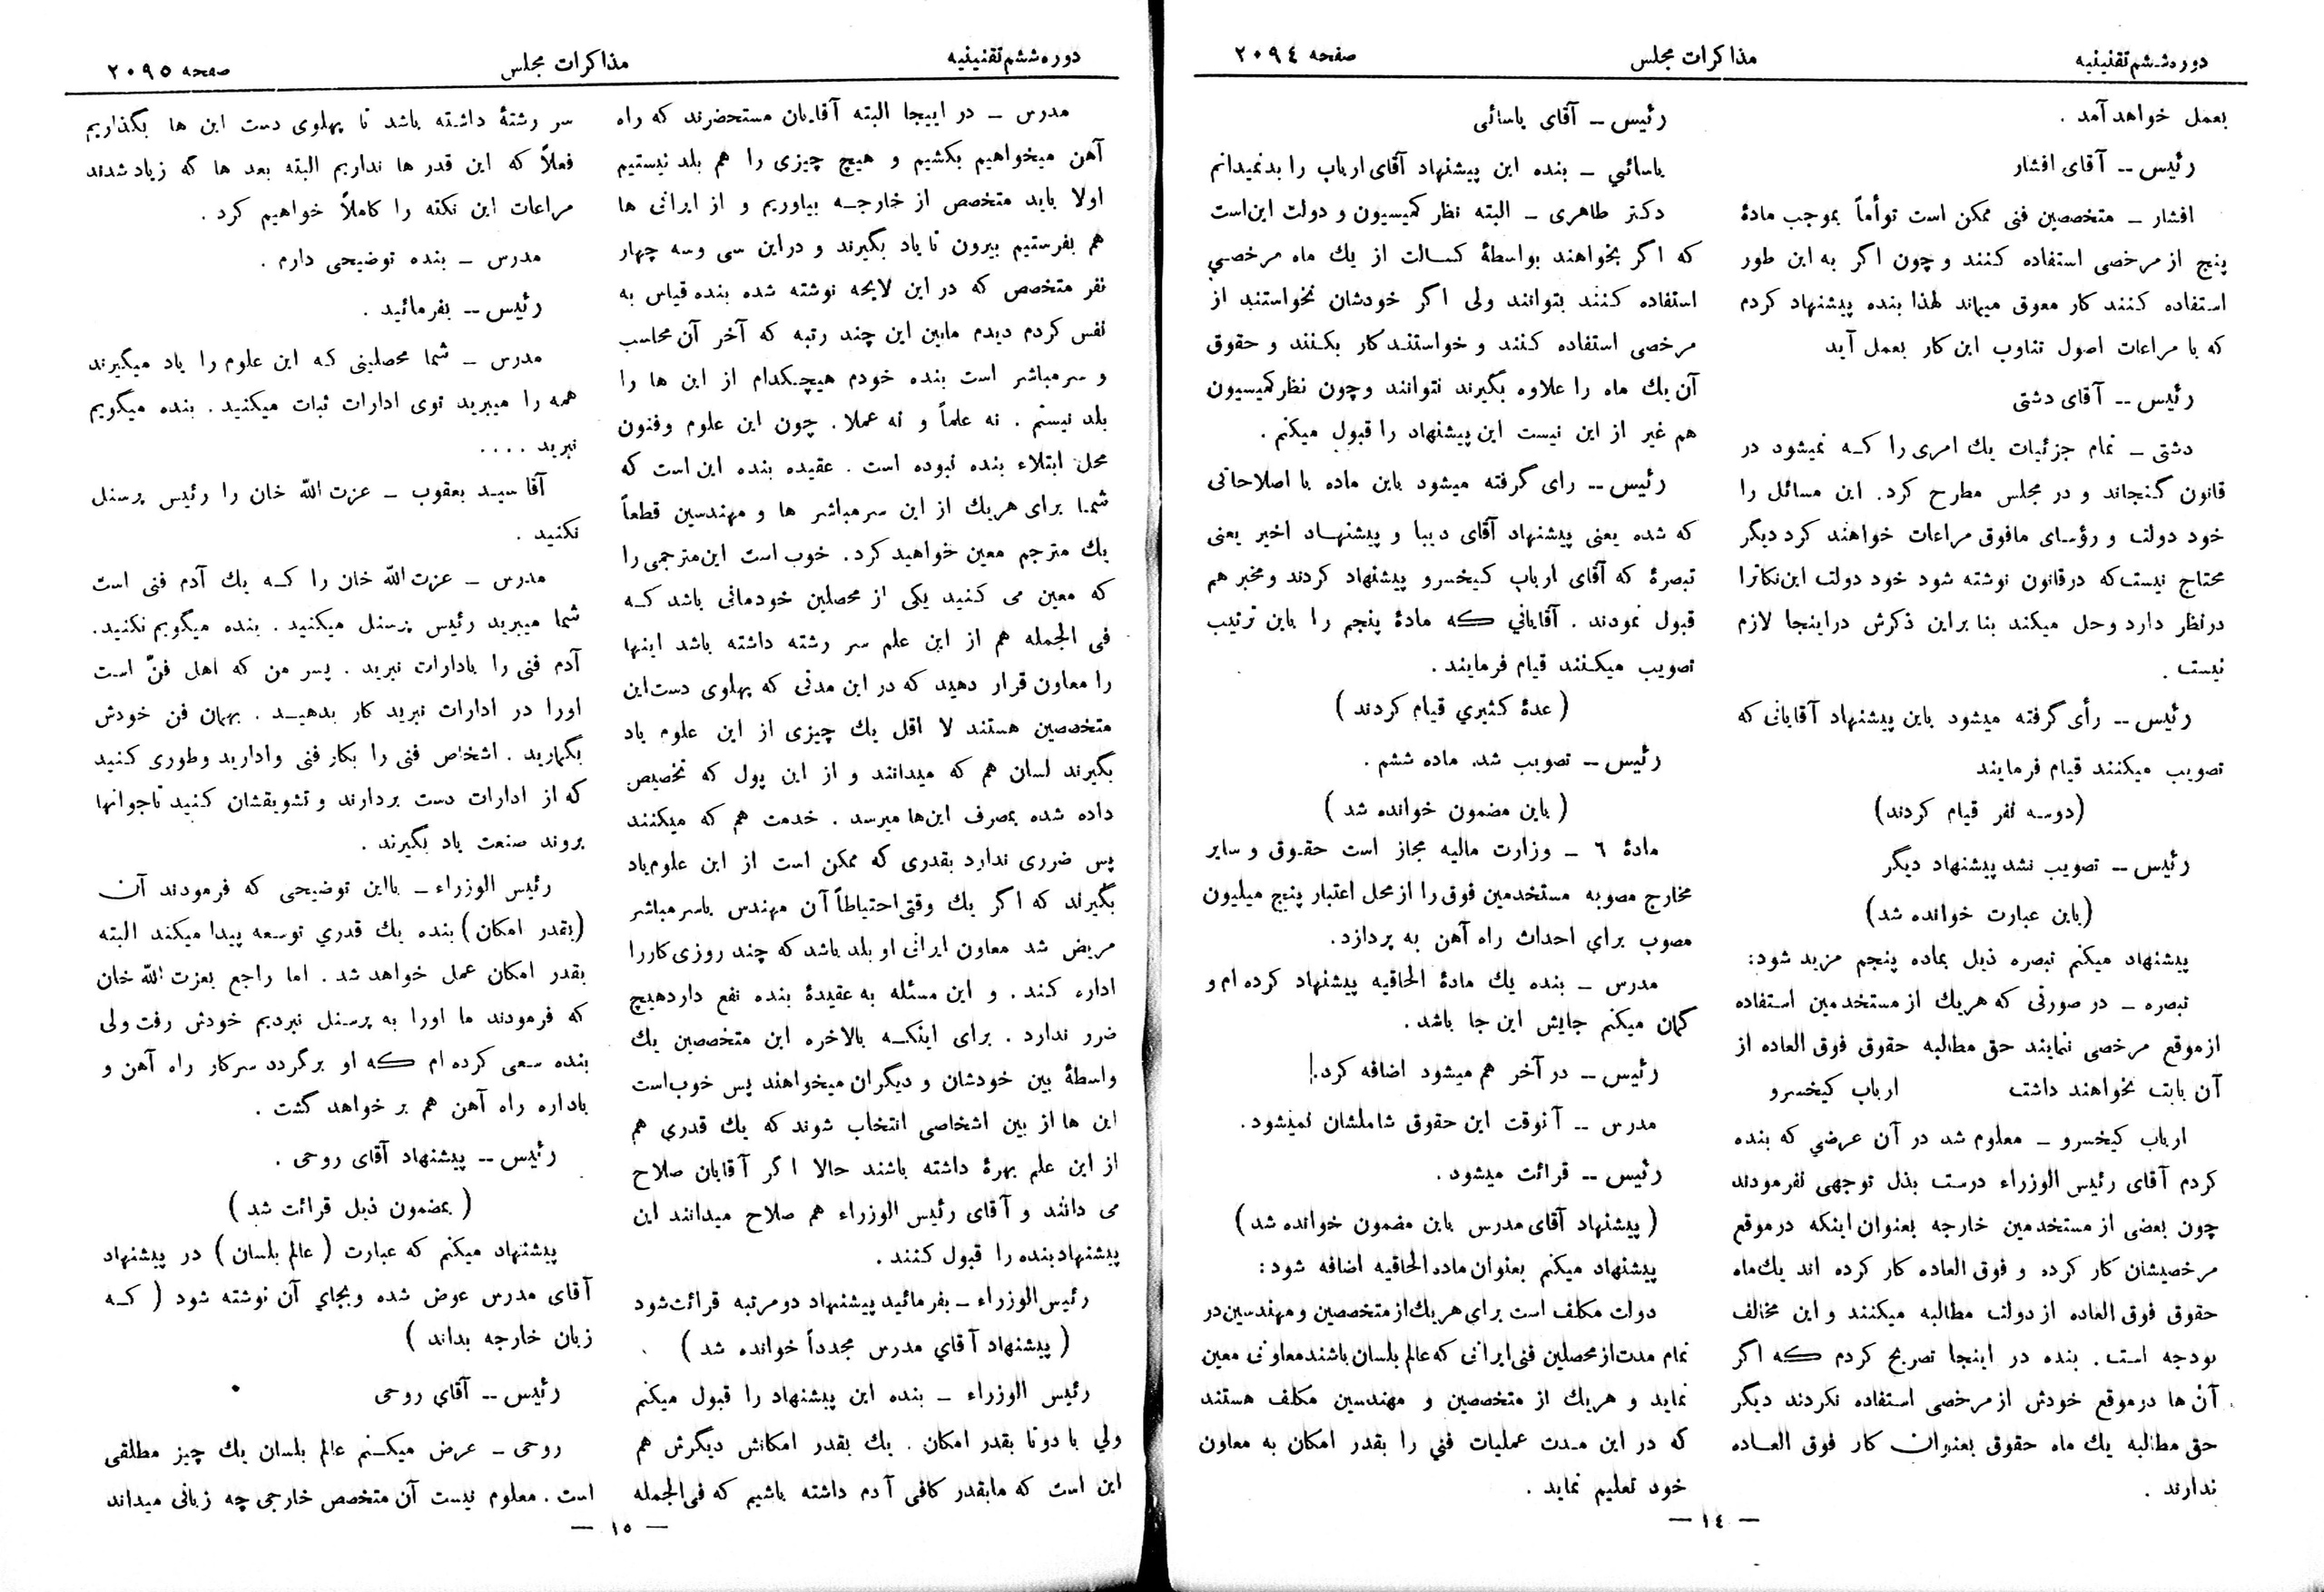 دوره ششم تقنینیه
مذاکرات مجلس
صفحه ۲۰۹٤
بعمل خواهد آمد .
رئیس -- آقای افشار
افشار - متخصصین فنی ممکن است توأماً بموجب مادهٔ
پنج از مرخصی استفاده کنند و چون اگر به این طور
استفاده کنند کار معوق میماند لهذا بنده پیشنهاد کردم
که با مراعات اصول تناوب این کار بعمل آید
رئیس -- آقای دشتی
دشتی - تمام جزئیات یك امری را که نمیشود در
قانون گنجاند و در مجلس مطرح کرد. این مسائل را
خود دولت و رؤسای مافوق مراعات خواهند کرد دیگر
محتاج نیست که در قانون نوشته شود خود دولت این نکاترا
در نظر دارد و حل میکند بنا براین ذکرش در اینجا لازم
نیست .
رئیس -- رأی گرفته میشود باین پیشنهاد آقایانی که
تصویب میکنند قیام فرمایند
(دوسه نفر قیام کردند)
رئیس -- تصویب نشد پیشنهاد دیگر
(باین عبارت خوانده شد)
پیشنهاد میکنم تبصره ذیل بماده پنجم مزید شود:
تبصره - در صورتی که هریك از مستخدمین استفاده
از موقع مرخصی ننمایند حق مطالبه حقوق فوق العاده از
آن بابت نخواهند داشت ارباب کیخسرو
ارباب کیخسرو - معلوم شد در آن عرضي که بنده
کردم آقای رئیس الوزراء درست بذل توجهی نفرمودند
چون بعضی از مستخدمین خارجه بعنوان اینکه در موقع
مرخصیشان کار کرده و فوق العاده کار کرده اند یك ماه
حقوق فوق العاده از دولت مطالبه میکنند و این مخالف
بودجه است. بنده در اینجا تصریح کردم که اگر
آن ها در موقع خودش از مرخصی استفاده نکردند دیگر
حق مطالبه یك ماه حقوق بعنوان کار فوق العاده
ندارند .
رئیس -- آقای یاسائی
یاسائي - بنده این پیشنهاد آقای ارباب را بد نمیدانم
دکتر طاهری - البته نظر کمیسیون و دولت این است
که اگر بخواهند بواسطهٔ کسالت از یك ماه مرخصي
استفاده کنند بتوانند ولی اگر خودشان نخواستند از
مرخصی استفاده کنند و خواستند کار بکنند و حقوق
آن یك ماه را علاوه بگیرند نتوانند و چون نظر کمیسیون
هم غیر از این نیست این پیشنهاد را قبول میکنم .
رئیس -- رای گرفته میشود باین ماده با اصلاحاتی
که شده یعنی پیشنهاد آقای دیبا و پیشنهاد اخیر یعنی
تبصرهٔ که آقای ارباب کیخسرو پیشنهاد کردند و مخبر هم
قبول نمودند . آقایاني که مادهٔ پنجم را باین ترتیب
تصویب میکنند قیام فرمایند.
( عدهٔ کثیري قیام کردند )
رئیس -- تصویب شد. ماده ششم .
( باین مضمون خوانده شد )
مادهٔ ٦ - وزارت مالیه مجاز است حقوق و سایر
مخارج مصوبه مستخدمین فوق را از محل اعتبار پنج میلیون
مصوب براي احداث راه آهن به پردازد.
مدرس - بنده یك مادهٔ الحاقیه پیشنهاد کرده ام و
گمان میکنم جایش این جا باشد.
رئیس -- در آخر هم میشود اضافه کرد.
مدرس -- آنوقت این حقوق شاملشان نمیشود.
رئیس -- قرائت میشود .
( پیشنهاد آقای مدرس باین مضمون خوانده شد )
پیشنهاد میکنم بعنوان ماده الحاقیه اضافه شود :
دولت مکلف است براي هر یك از متخصصین و مهندسین در
تمام مدت از محصلین فنی ایرانی که عالم بلسان باشند معاونی معین
نماید و هریك از متخصصین و مهندسین مکلف هستند
که در این مدت عملیات فني را بقدر امکان به معاون
خود تعلیم نماید .
— ۱٤ —
دوره ششم تقنینیه
مذاکرات مجلس
صفحه ۲۰۹۵
مدرس - در اینجا البته آقایان مستحضرند که راه
آهن میخواهیم بکشیم و هیچ چیزی را هم بلد نیستیم
اولا باید متخصص از خارجه بیاوریم و از ایرانی ها
هم بفرستیم بیرون تا یاد بگیرند و در این سی وسه چهار
نفر متخصص که در این لایحه نوشته شده بنده قیاس به
نفس کردم دیدم مابین این چند رتبه که آخر آن محاسب
و سرمباشر است بنده خودم هیچکدام از این ها را
بلد نیستم . نه علماً و نه عملا. چون این علوم وفنون
محل ابتلاء بنده نبوده است . عقیده بنده این است که
شما برای هریك از این سرمباشر ها و مهندسین قطعاً
یك مترجم معین خواهید کرد. خوب است این مترجمی را
که معین می کنید یکی از محصلین خودمانی باشد که
فی الجمله هم از این علم سر رشته داشته باشد اینها
را معاون قرار دهید که در این مدتی که پهلوی دست این
متخصصین هستند لا اقل یك چیزی از این علوم یاد
بگیرند لسان هم که میدانند و از این پول که تخصیص
داده شده بمصرف این ها میرسد . خدمت هم که میکنند
پس ضرری ندارد بقدری که ممکن است از این علوم یاد
بگیرند که اگر یك وقتی احتیاطاً آن مهندس یا سر مباشر
مریض شد معاون ایرانی او بلد باشد که چند روزی کار را
اداره کند . و این مسئله به عقیدهٔ بنده نفع دارد هیچ
ضرر ندارد . برای اینکه بالاخره این متخصصین یك
واسطهٔ بین خودشان و دیگران میخواهند پس خوب است
این ها از بین اشخاصی انتخاب شوند که یك قدري هم
از این علم بهرهٔ داشته باشند حالا اگر آقایان صلاح
می دانند و آقای رئیس الوزراء هم صلاح میدانند این
پیشنهاد بنده را قبول کنند .
رئیس الوزراء - بفرمائید پیشنهاد دو مرتبه قرائت شود
( پیشنهاد آقاي مدرس مجدداً خوانده شد )
رئیس الوزراء - بنده این پیشنهاد را قبول میکنم
ولي با دوتا بقدر امکان . یك بقدر امکانش دیگرش هم
این است که مابقدر کافی آدم داشته باشیم که فی الجمله
سر رشتهٔ داشته باشد تا پهلوی دست این ها بگذاریم
فعلاً که این قدر ها نداریم البته بعد ها که زیاد شدند
مراعات این نکته را کاملاً خواهیم کرد .
مدرس - بنده توضیحی دارم .
رئیس -- بفرمائید .
مدرس - شما محصلینی که این علوم را یاد میگیرند
همه را میبرید توی ادارات ثبات میکنید . بنده میگویم
نبرید . . . .
آقا سید یعقوب - عزت الله خان را رئیس پرسنل
نکنید .
مدرس - عزت الله خان را که یك آدم فنی است
شما میبرید رئیس پرسنل میکنید . بنده میگویم نکنید.
آدم فنی را بادارات نبرید . پسر من که اهل فنّ است
اورا در ادارات نبرید کار بدهید . بهمان فن خودش
بگمارید . اشخاص فنی را بکار فنی وادارید وطوری کنید
که از ادارات دست بردارند و تشویقشان کنید تاجوانها
بروند صنعت یاد بگیرند .
رئیس الوزراء - بااین توضیحی که فرمودند آن
(بقدر امکان) بنده یك قدري توسعه پیدا میکند البته
بقدر امکان عمل خواهد شد . اما راجع بعزت الله خان
که فرمودند ما اورا به پرسنل نبردیم خودش رفت ولی
بنده سعی کرده ام که او برگردد سرکار راه آهن و
باداره راه آهن هم بر خواهد گشت .
رئیس -- پیشنهاد آقای روحی .
( بمضمون ذیل قرائت شد )
پیشنهاد میکنم که عبارت ( عالم بلسان ) در پیشنهاد
آقای مدرس عوض شده وبجاي آن نوشته شود ( که
زبان خارجه بداند )
رئیس -- آقای روحی
روحی - عرض میکنم عالم بلسان یك چیز مطلقی
است . معلوم نیست آن متخصص خارجی چه زبانی میداند
— ۱۵ —